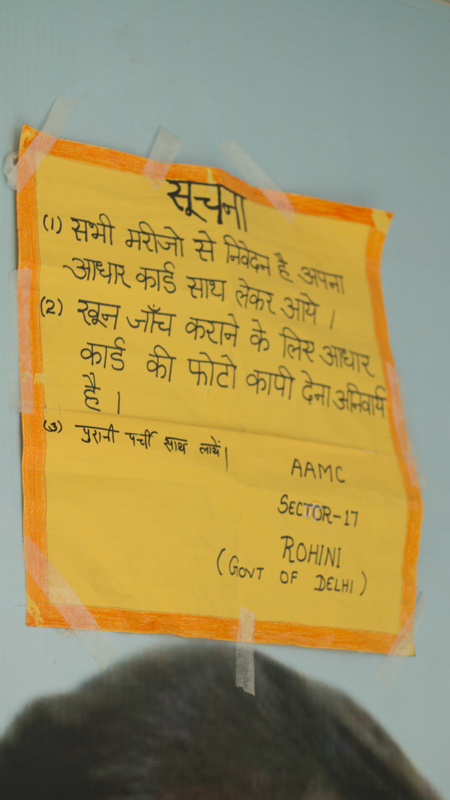 सूचना
(1) सभी मरीजो से निवेदन है अपना
आधार कार्ड साथ लेकर आये ।
(2) खून जाँच कराने के लिए आधार
कार्ड की फोटो कापी देना अनिवार्य
है ।
(3) पुरानी पर्ची साथ लायें।
AAMC
SECTOR-17
ROHINI
(GOVT OF DELHI)